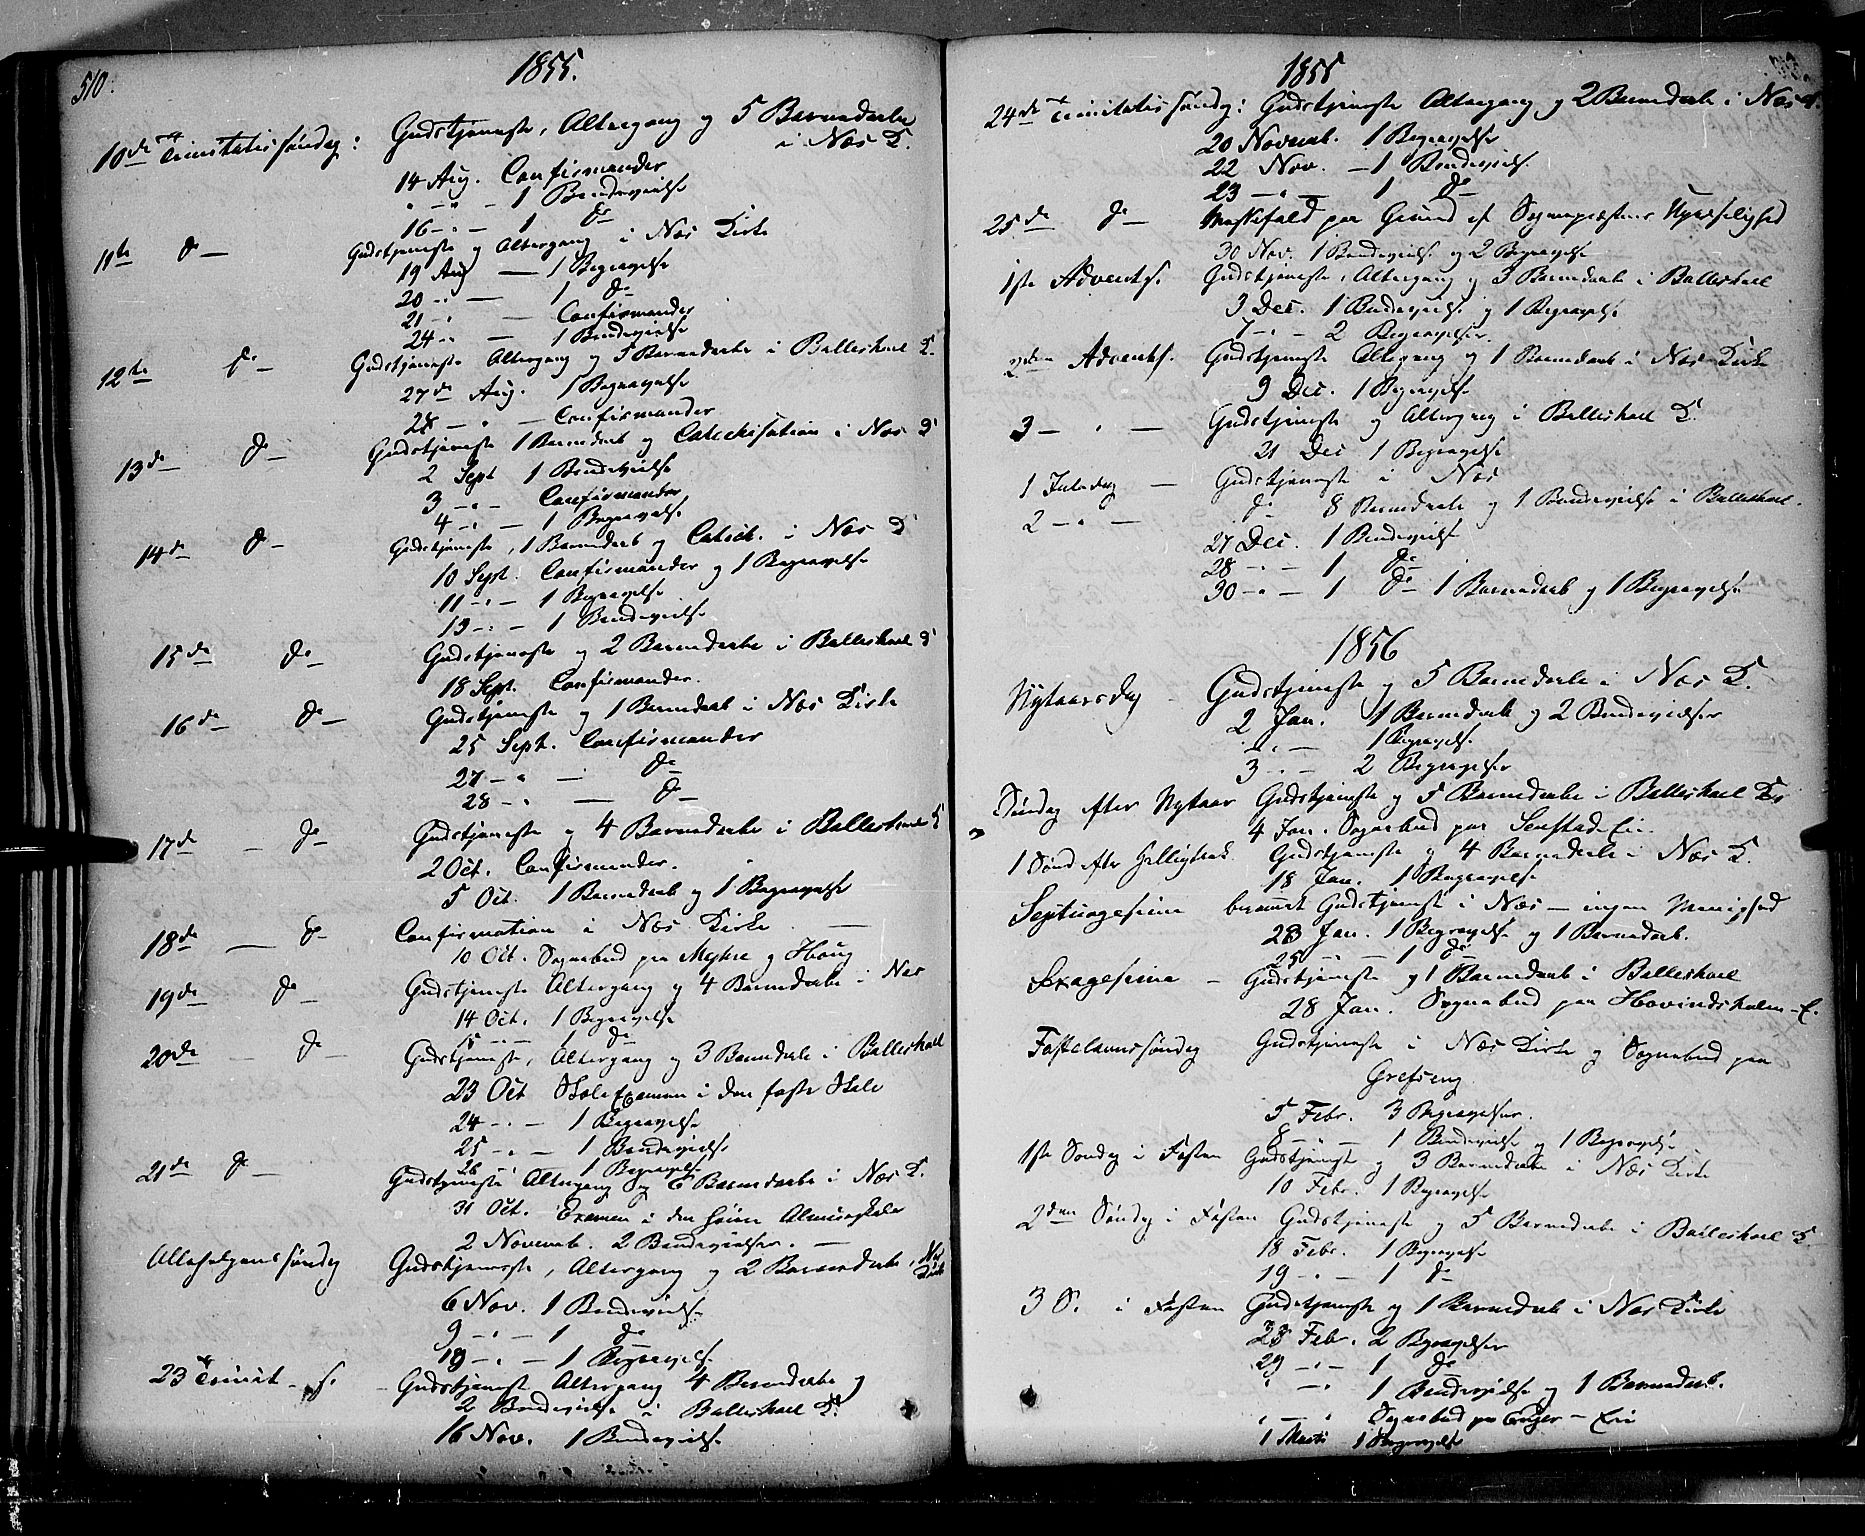 510.
1855.
10de Trinitatissøndag: Gudstjeneste, Altergang og 5 Barnedaabe
i Næs K.
14 Aug. Confirmander
" - " - 1 Brudevielse
16 - " - 1 do
11te do - Gudstjeneste og Altergang i Næs Kirke
19 Aug - 1 Begravelse
20 - " - 1 do
21 - " - Confirmander
24 - " - 1 Brudevielse
12te do - Gudstjeneste Altergang og 5 Barnedaabe i Balleshoel K.
27de Aug. 1 Begravelse
28 - " - Confirmander
13de do - Gudstjeneste 1 Barnedaab og Catechisation i Næs K
2 Sept 1 Brudevielse
3 - " - Confirmander
4 - " - 1 Begravelse
14de do - Gudstjeneste, 1 Barnedaab og Catech. i Næs K
10 Sept. Confirmander og 1 Begravelse
11 - " - 1 Begravelse
13 - " - 1 Brudevielse
15de do - Gudstjeneste og 2 Barnedaabe i Balleshoel K
18 Sept. Confirmander.
16de do - Gudstjeneste og 1 Barnedaab i Næs Kirke
25 Sept. Confirmander
27 - " - do
28 - " - do
17de - do - Gudstjeneste og 4 Barnedaabe i Balleshoel K
2 Oct. Confirmander.
5 Oct. 1 Barnedaab og 1 Begravelse
18de - do - Confirmation i Næs Kirke
10 Oct. Sognebud paa Myhre og Houg
19de do - Gudstjeneste Altergang og 4 Barnedaabe i Næs
14 Oct. 1 Begravelse
1 do
20de - do - Gudstjeneste, Altergang og 3 Barnedaabe i Balleshoel
23 Oct Skole Examen i den faste Skole
24 - " - 1 Begravelse
25 - " - 1 Brudevielse
26 - 1 Begravelse
21de do - Gudstjeneste Altergang og 6 Barnedaabe i Næs K.
31 Oct. Examen i den Almueskole
2 Novemb. 2 Brudevielser. -
Allehelgenssøndag Gudstjeneste, Altergang og 2 Barnedaabe, Næs
Kirke
6 Nov. 1 Brudevielse
9 - " - 1 do
10 - " - 1 Begravelse
23 Trinit - s. - Gudstjeneste Altergang 4 Barnedaabe og
2 Brudevielse i Balleshoel K.
16 Nov. 1 Brudevielse
1855
24de Trinitatissøndag: Gudstjeneste Altergang og 2 Barnedaabe i Næs K.
20 Novemb. 1 Begravelse
22 Nov. - 1 Brudevielse
23 - " - 1 do
25de do - Messefald paa Grund af Sognepræstens Upasselighed
30 Nov. 1 Brudevielse og 2 Begravelse
1ste Advents. Gudstjeneste, Altergang og 3 Barnedaabe i Balleshoel
3 Dec. 1 Brudevielse og 1 Begravelse
7 - " - 2 Begravelser.
2den Advents. Gudstjeneste Altergang og 1 Barnedaab i Næs Kirke
9 Dec. 1 Begravelse
3 - " - Gudstjeneste og Altergang i Balleshoel K
21 Dec 1 Begravelse
1 Juledag - Gudstjeneste i Næs
2 - " - do 8 Barnedaabe og 1 Brudevielse i Balleshoel.
27 Dec. 1 Brudevielse
28 - " - 1 do
30 - " - 1 do - 1 Barnedaab og 1 Begravelse
1856
Nytaarsdag - Gudstjeneste og 5 Barnedaabe i Næs K.
2 Jan. 1 Barnedaab og 2 Brudevielser
" " - 1 Begravelse
3 - " - 2 Begravelser
Søndag efter Nytaar Gudstjeneste og 5 Barnedaabe i Balleshoel K
4 Jan. Sognebud paa
1 Sønd efter Helligtrek. Gudstjeneste og 4 Barnedaabe i Næs K.
18 Jan. 1 Begravelse
Septuagesima berammet Gudstjeneste i Næs - ingen Menighed
23 Jan. 1 Begravelse og 1 Barnedaab.
25 - " - 1 do
Sexagesima - Gudstjeneste og 1 Barnedaab i Balleshoel
28 Jan. Sognebud paa Hovindsholm-E.
Fastelavnssøndag Gudstjeneste i Næs Kirke og Sognebud paa
Grefseng
5 Febr. 3 Begravelser.
8 - " - 1 Brudevielse og 1 Begravelse
1ste Søndag i Fasten Gudstjeneste og 3 Barnedaabe i Næs Kirke
10 Febr. 1 Begravelse
2den Søndag i Fasten Gudstjeneste og 5 Barnedaabe i Balleshoel K.
18 Febr. 1 Begravelse
19 - " - 1 do
3 S. i Fasten Gudstjeneste og 1 Barnedaab i Næs Kirke
23 Febr. 2 Begravelser
29 - " - 1 do
" - " 1 Brudevielse og 1 Barnedaab.
" - " Sognebud paa - Eie
1 Marts 1 Begravelse